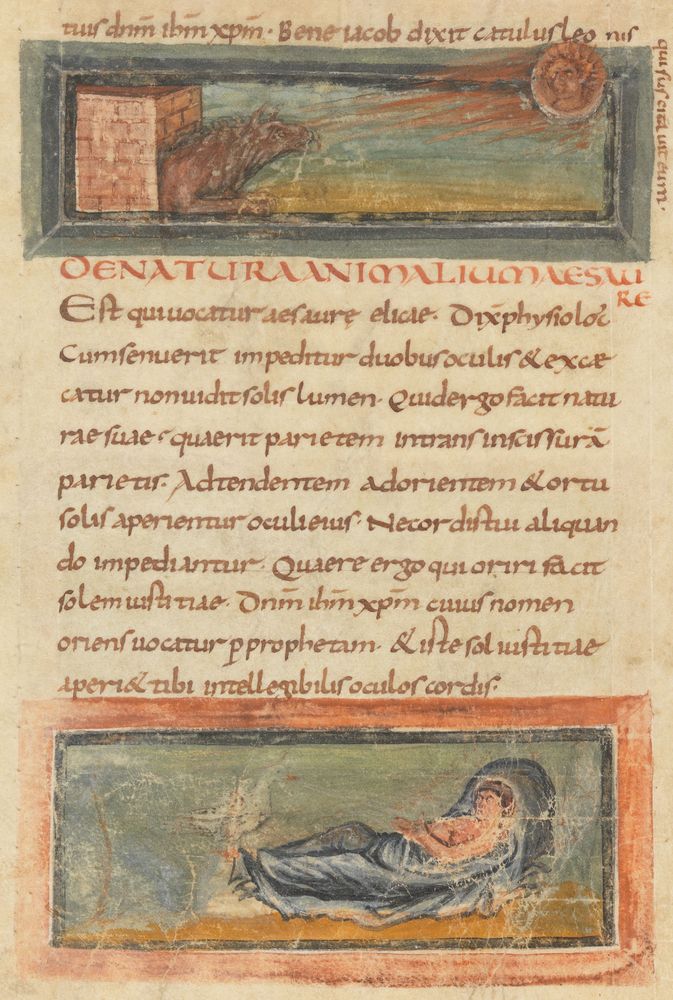 tuis dnm ihm xpm · Bene iacob dixit catulus leo nis
qui suscitavit eum ·
DE NATURA ANIMALIUM AESAU
RE
Est qui vocatur aesaure elicae · Dix physiolo
Cum senuerit impeditur duobus oculis & excae
catur non vidit solis lumen · Quid ergo facit natu
rae suae quaerit parietem intrans in scissura
parietis · Adtendentem ad orientem & ortu
solis aperientur oculi eius · Ne cor dis tui aliquan
do impediantur · Quaere ergo qui oriri facit
solem iustitiae · Dnm ihm xpm cuius nomen
oriens vocatur p prophetam · & iste sol iustitiae
aperi& tibi intellegibilis oculos cordis ·